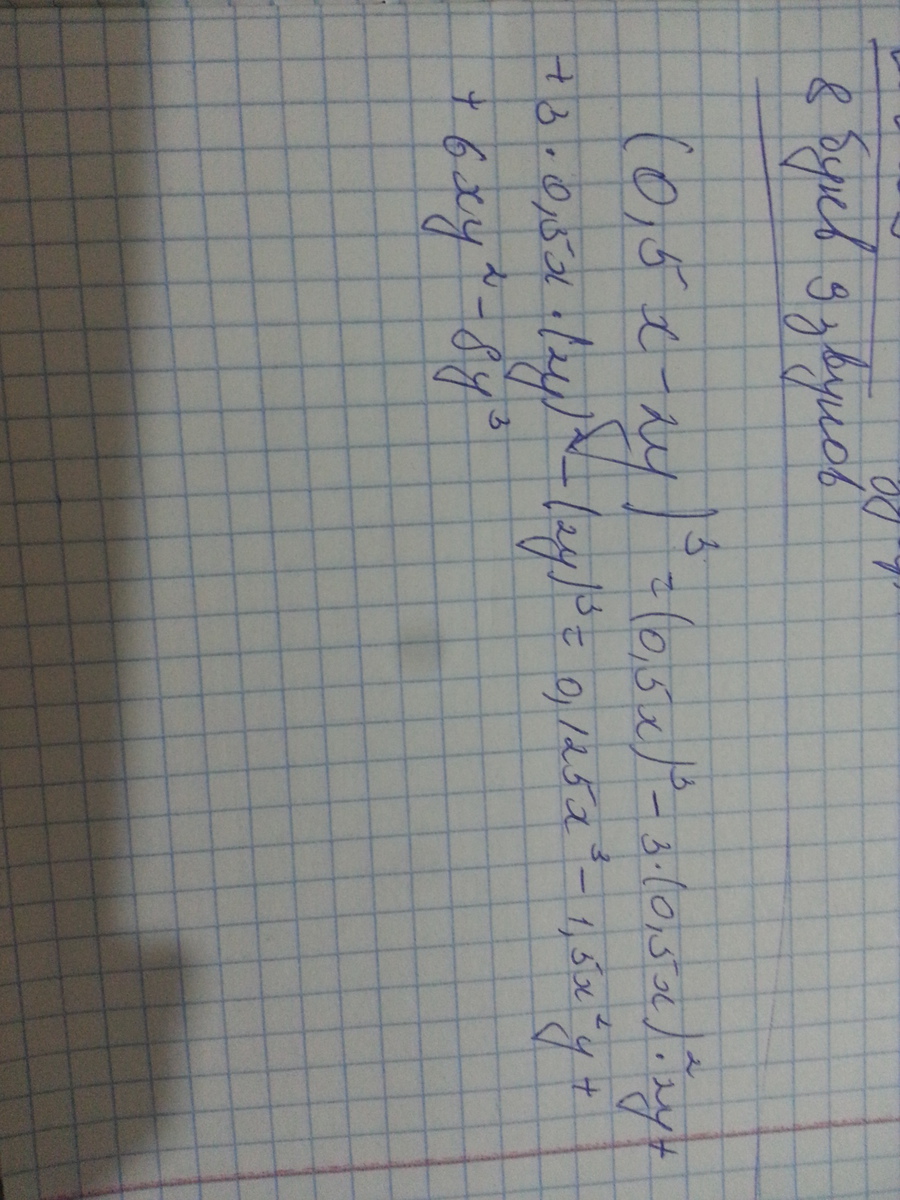 8 букв 9 звуков
(0,5x - 2y)³ = (0,5x)³ - 3·(0,5x)²·2y +
+ 3·0,5x·(2y)² - (2y)³ = 0,125x³ - 1,5x²y +
+ 6xy² - 8y³